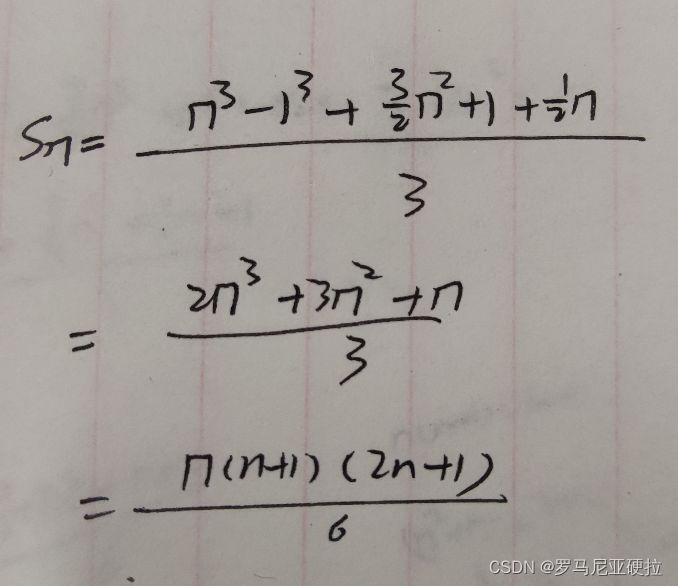 Sn = (n³ - 1³ + 3/2 n² + 1 + 1/2 n) / 3
= (2n³ + 3n² + n) / 3
= n(n+1)(2n+1) / 6
CSDN @罗马尼亚硬拉